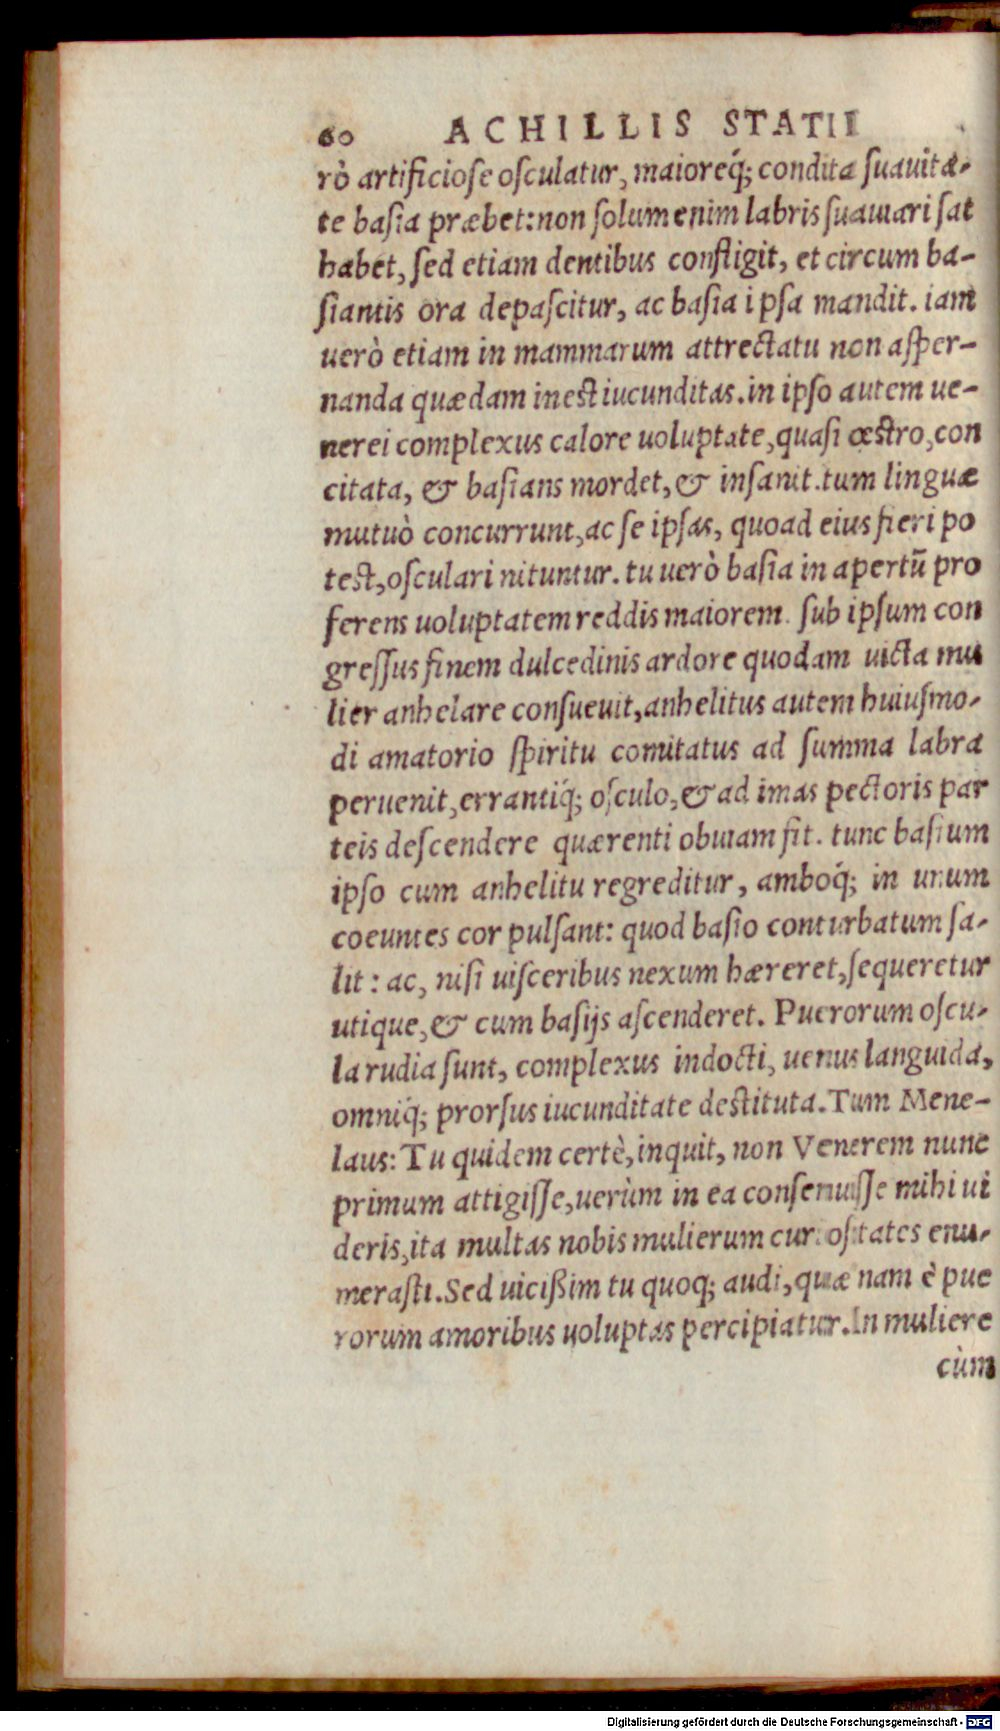 60 ACHILLIS STATII
rò artificiose osculatur, maioreq́; condita suauita-
te basia præbet: non solum enim labris suauiari sat
habet, sed etiam dentibus confligit, et circum ba-
siantis ora depascitur, ac basia ipsa mandit. iam
uerò etiam in mammarum attrectatu non asper-
nanda quædam inest iucunditas. in ipso autem ue-
nerei complexus calore uoluptate, quasi œstro, con
citata, & basians mordet, & insanit. tum linguæ
mutuò concurrunt, ac se ipsas, quoad eius fieri po
test, osculari nituntur. tu uerò basia in apertū pro
ferens uoluptatem reddis maiorem. sub ipsum con
gressus finem dulcedinis ardore quodam uicta mu
lier anhelare consueuit, anhelitus autem huiusmo-
di amatorio spiritu comitatus ad summa labra
peruenit, errantíq; osculo, & ad imas pectoris par
teis descendere quærenti obuiam fit. tunc basium
ipso cum anhelitu regreditur, amboq́; in unum
coeuntes cor pulsant: quod basio conturbatum sa-
lit: ac, nisi uisceribus nexum hæreret, sequeretur
utique, & cum basijs ascenderet. Puerorum oscu-
la rudia sunt, complexus indocti, uenus languida,
omniq́; prorsus iucunditate destituta. Tum Mene-
laus: Tu quidem certè, inquit, non Venerem nunc
primum attigisse, uerùm in ea consenuisse mihi ui
deris, ita multas nobis mulierum curiositates enu-
merasti. Sed uicißim tu quoq; audi, quæ nam è pue
rorum amoribus uoluptas percipiatur. In muliere
cùm
Digitalisierung gefördert durch die Deutsche Forschungsgemeinschaft - DFG